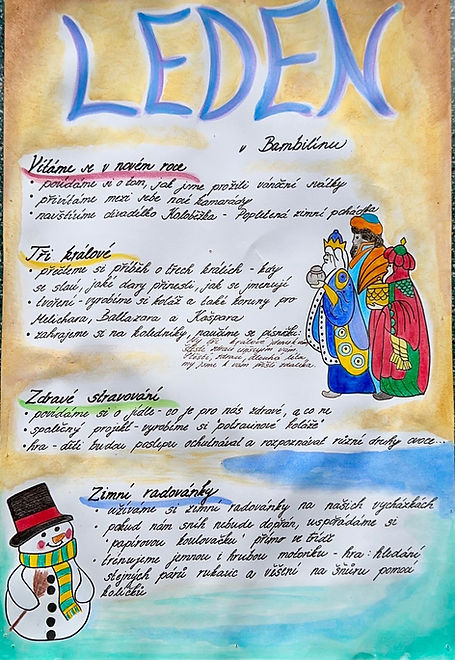 LEDEN
v Bambilínu
Vítáme se v novém roce
• povídáme si o tom, jak jsme prožili vánoční svátky
• přivítáme mezi sebe nové kamarády
• navštívíme divadelko Koloběžka - Popletená zimní pohádka
Tři králové
• přečteme si příběh o třech králích - kdy
se slaví, jaké dary přinesli, jak se jmenují
• tvoření - vyrobíme si koláž a také koruny pro
Melichara, Baltazara a Kašpara
• zahrajeme si na koledníky, naučíme se písničku:
My tři králové jdeme k vám
štěstí, zdraví vinšujem vám
Štěstí, zdraví, dlouhá léta,
my jsme k vám přišli zdaleka.
Zdravé stravování
• povídáme si o jídle - co je pro nás zdravé, a co ne
• společný projekt - vyrobíme si "potravinové koláže"
• hra - děti budou poslepu ochutnávat a rozpoznávat různé druhy ovoce...
Zimní radovánky
• užíváme si zimní radovánky na našich vycházkách
• pokud nám sníh nebude dopřán, uspořádáme si
"papírovou koulovačku" přímo ve třídě
• trénujeme jemnou i hrubou motoriku - hra: hledání
stejných párů rukavic a věšení na šňůru pomocí
kolíčků